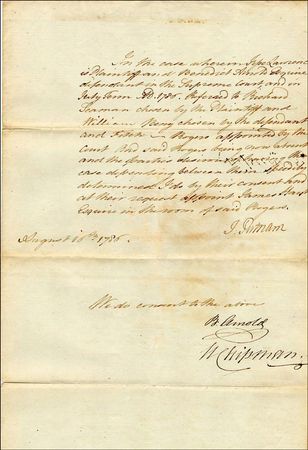 In the case wherein Jesse Lawrence
is Plaintiff and Benedict Arnold Esquire
defendant in the Supreme Court and in
July Term AD. 1786. Refered to Richard
Seaman chosen by the Plaintiff and
William chosen by the defendant
and Rogers appointed by the
Court And said Rogers being now absent
and the parties desirous the
case depending between them speedily
determined I do by their consent and
at their request appoint James
Esquire in the room of said Rogers.
J. Putnam
August 16th 1786.
We do consent to the above
B. Arnold
W Chipman.